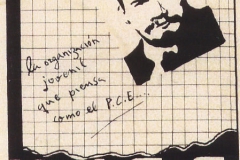 la organización
juvenil
que piensa
como el P.C.E....